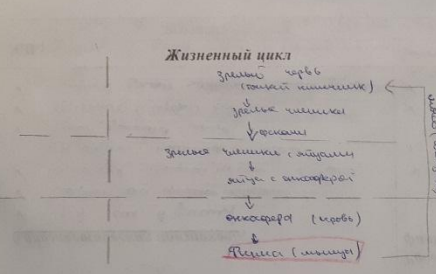 Жизненный цикл
зрелый червь
(тонкий кишечник)
зрелые членики
фекалии
зрелые членики с яйцами
яйца с онкосферой
онкосфера (кровь)
Финна (мышцы)